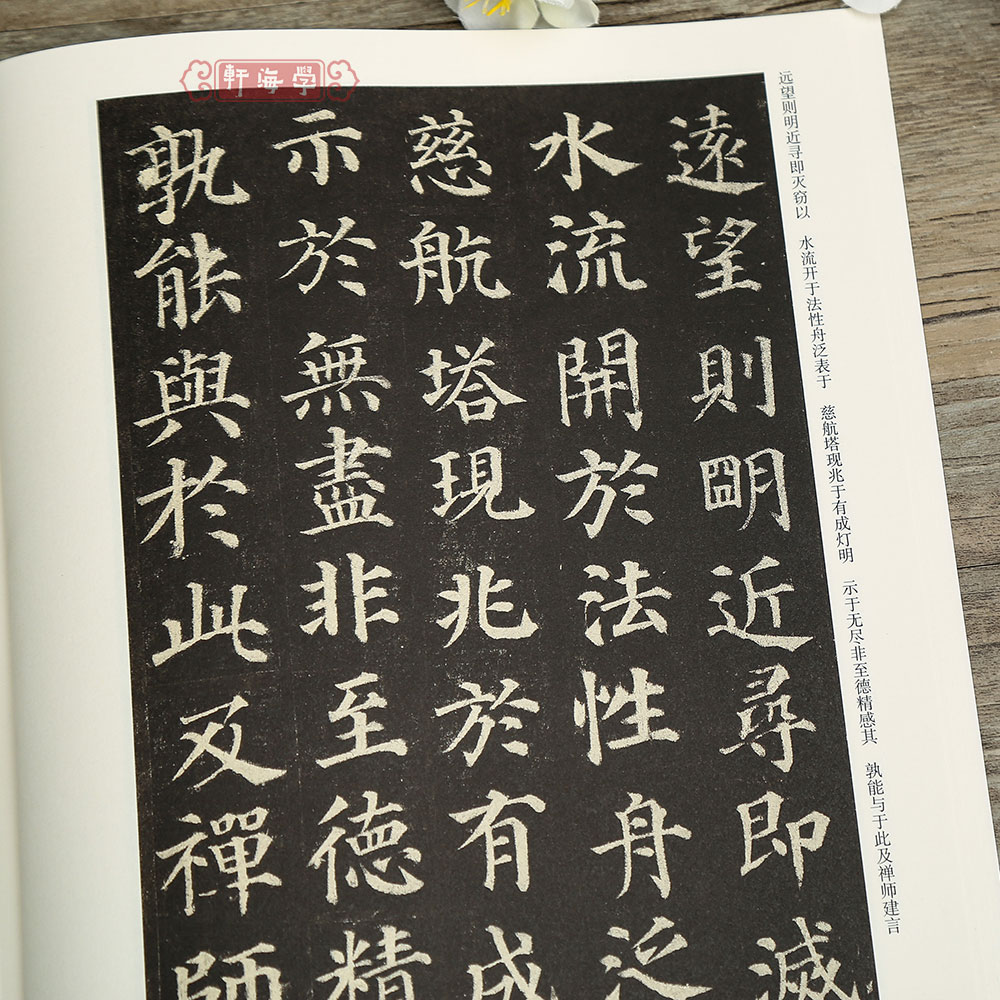 遠望則明近尋即滅
水流開於法性舟泛
慈航塔現兆於有成
示於無盡非至德精
孰能與於此及禪師
远望则明近寻即灭窃以
水流开于法性舟泛表于
慈航塔现兆于有成灯明
示于无尽非至德精感其
孰能与于此及禅师建言
軒海学